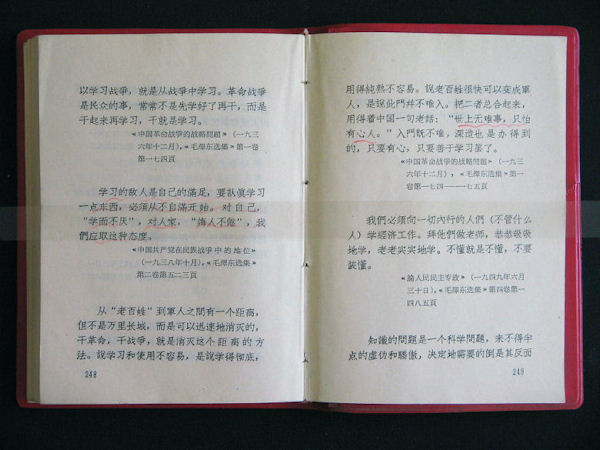 以学习战爭，就是从战爭中学习。革命战爭
是民众的事，常常不是先学好了再干，而是
干起来再学习，干就是学习。
《中国革命战爭的战略問題》（一九三
六年十二月），《毛澤东选集》第一卷
第一七四頁
学习的敌人是自己的滿足，要訊眞学习
一点东西，必須从不自滿开始。对自己，
“学而不厌”，对人家，“誨人不倦”，我
們应取这种态度。
《中国共产党在民族战爭中的地位》
（一九三八年十月），《毛澤东选集》
第二卷第五二三頁
从“老百姓”到軍人之間有一个距离，
但不是万里长城，而是可以迅速地消灭的，
干革命，干战爭，就是消灭这个距离的方
法。說学习和使用不容易，是說学得彻底，
248
用得純熟不容易。說老百姓很快可以变成軍
人，是說此門并不难入。把二者总合起来，
用得着中国一句老話：“世上无难事，只怕
有心人。”入門既不难，深造也是办得到
的，只要有心，只要善于学习罢了。
《中国革命战爭的战略問題》（一九三
六年十二月），《毛澤东选集》第一卷
第一七四——一七五頁
我們必須向一切內行的人們（不管什么
人）学經济工作。拜他們做老师，恭恭敬敬
地学，老老实实地学。不懂就是不懂，不要
装懂。
《論人民民主专政》（一九四九年六月
三十日），《毛澤东选集》第四卷第一
四八五頁
知識的問題是一个科学問題，来不得半
点的虛伪和驕傲，决定地需要的倒是其反面
249